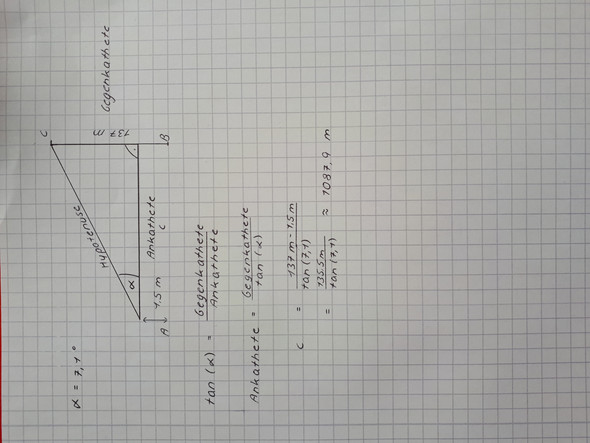 α = 7,1°
C
Hypotenuse
137 m
Gegenkathete
α
Ankathete
c
1.5 m
A
B
tan (α) = Gegenkathete
Ankathete
Ankathete = Gegenkathete
tan (α)
c = 137 m - 1,5 m
tan (7,1)
= 135.5 m
tan (7,1)
≈ 1087,9 m